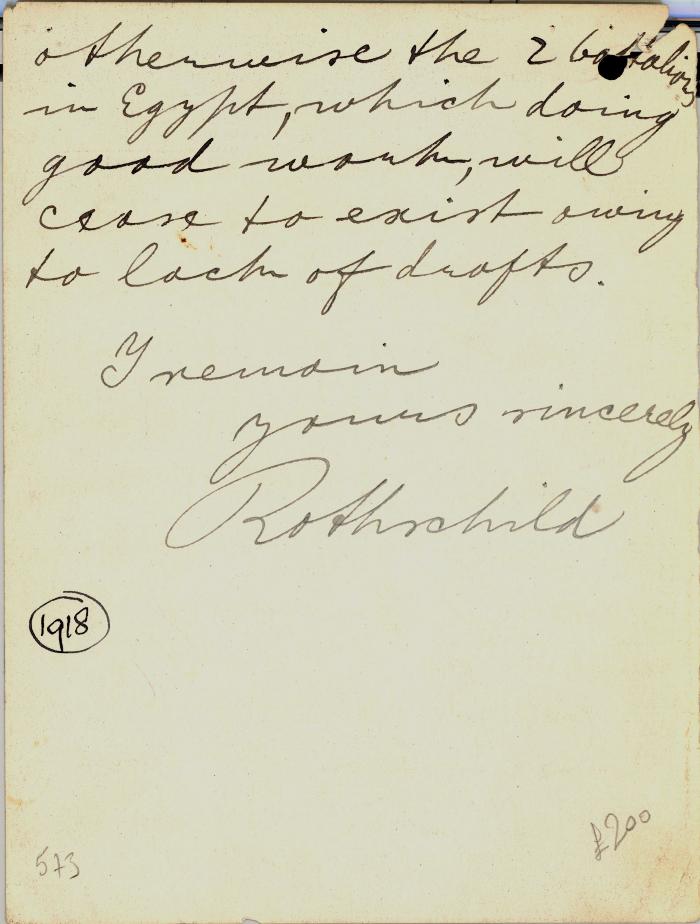 otherwise the 2 battalions
in Egypt, which doing
good work, will
cease to exist owing
to lack of drafts.
I remain
yours sincerely
Rothschild
1918
£200
573